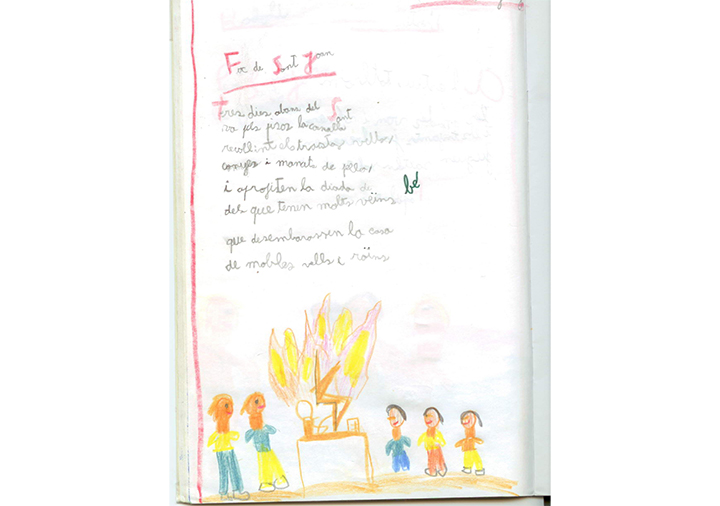 Foc de Sant Joan
tres dies abans del Sant
va pels pisos la canalla
recollint els trastos vells,
i manats de palla,
i aprofiten la diada
dels que tenen molts veïns
bé
que desembarassen la casa
de mobles vells i roïns